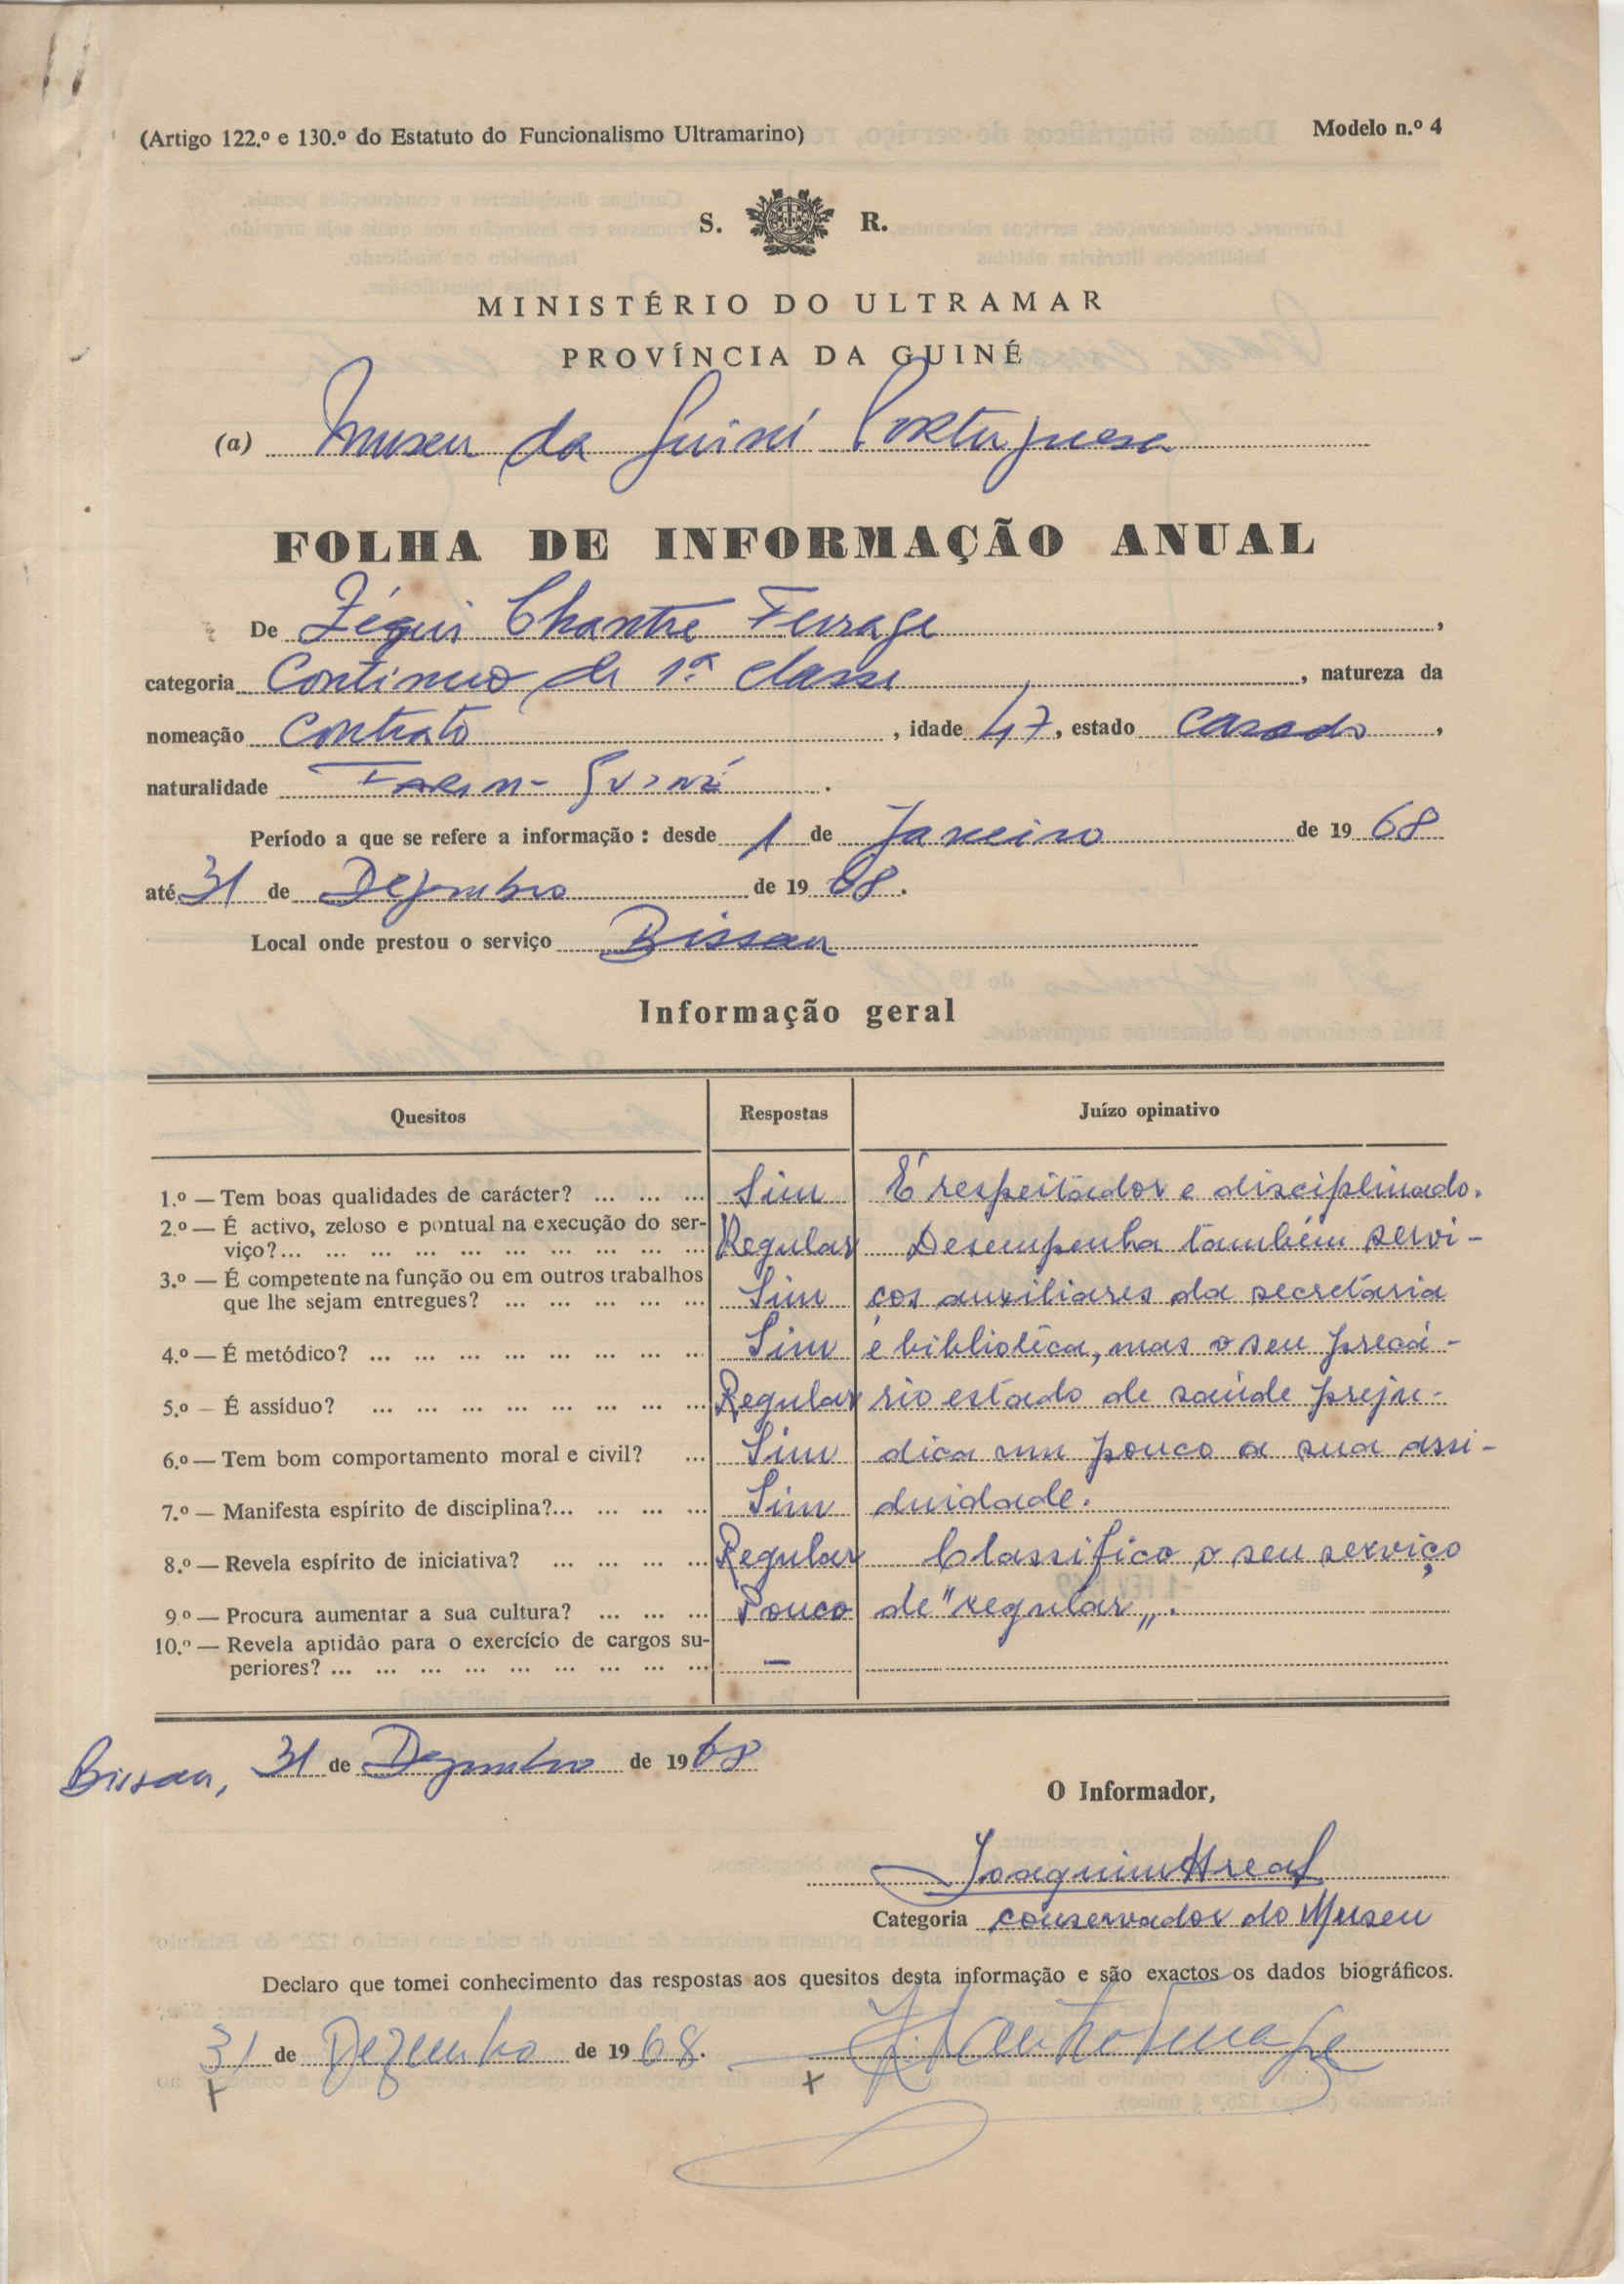 (Artigo 122.º e 130.º do Estatuto do Funcionalismo Ultramarino) Modelo n.º 4
S. R.
MINISTÉRIO DO ULTRAMAR
PROVÍNCIA DA GUINÉ
(a) Museu da Guiné Portuguesa
FOLHA DE INFORMAÇÃO ANUAL
De Zégui Chantre Ferrage,
categoria Continuo de 1ª classe, natureza da
nomeação Contrato, idade 47, estado casado,
naturalidade Farim - Guiné.
Período a que se refere a informação: desde 1 de Janeiro de 1968
até 31 de Dezembro de 1968.
Local onde prestou o serviço Bissau
Informação geral
Quesitos Respostas Juízo opinativo
1.º — Tem boas qualidades de carácter? ... ... ... Sim É respeitador e disciplinado.
2.º — É activo, zeloso e pontual na execução do ser-
viço?... ... ... ... ... ... ... ... ... ... Regular Desempenha também servi-
3.º — É competente na função ou em outros trabalhos
que lhe sejam entregues? ... ... ... ... ... Sim ços auxiliares da secretaria
4.º — É metódico? ... ... ... ... ... ... ... ... Sim e biblioteca, mas o seu precá-
5.º — É assíduo? ... ... ... ... ... ... ... ... Regular rio estado de saúde preju-
6.º — Tem bom comportamento moral e civil? ... Sim dica um pouco a sua assi-
7.º — Manifesta espírito de disciplina?... ... ... ... Sim duidade.
8.º — Revela espírito de iniciativa? ... ... ... ... Regular Classifico o seu serviço
9º — Procura aumentar a sua cultura? ... ... ... Pouco de "regular".
10.º — Revela aptidão para o exercício de cargos su-
periores? ... ... ... ... ... ... ... ... ... —
Bissau, 31 de Dezembro de 1968
O Informador,
Joaquim Areal
Categoria conservador do Museu
Declaro que tomei conhecimento das respostas aos quesitos desta informação e são exactos os dados biográficos.
31 de Dezembro de 1968.